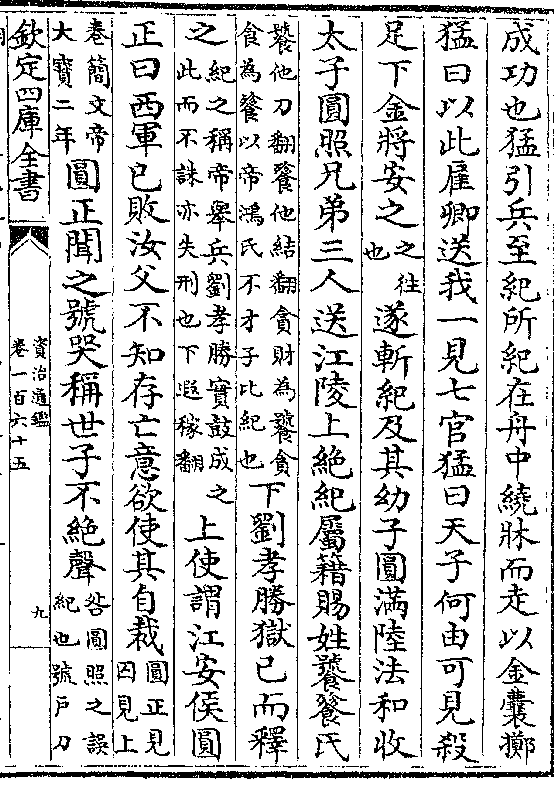 成功也猛引兵至紀所紀在舟中繞牀而走以金囊擲
猛曰以此雇卿送我一見七官猛曰天子何由可見殺
足下金將安之之往也遂斬紀及其幼子圓滿陸法和收
太子圓照兄弟三人送江陵上絶紀屬籍賜姓饕餮氏
饕他刀翻餮他結翻貪財為饕貪食為餮以帝鴻氏不才子比紀也下劉孝勝獄已而釋
之紀之稱帝舉兵劉孝勝實鼓成之此而不誅亦失刑也下遐稼翻上使謂江安侯圓
正曰西軍已敗汝父不知存亡意欲使其自裁圓正見囚見上
卷簡文帝大寶二年圓正聞之號哭稱世子不絶聲咎圓照之誤紀也號户刀
欽定四庫全書
資治通鑑
卷一百六十五
九